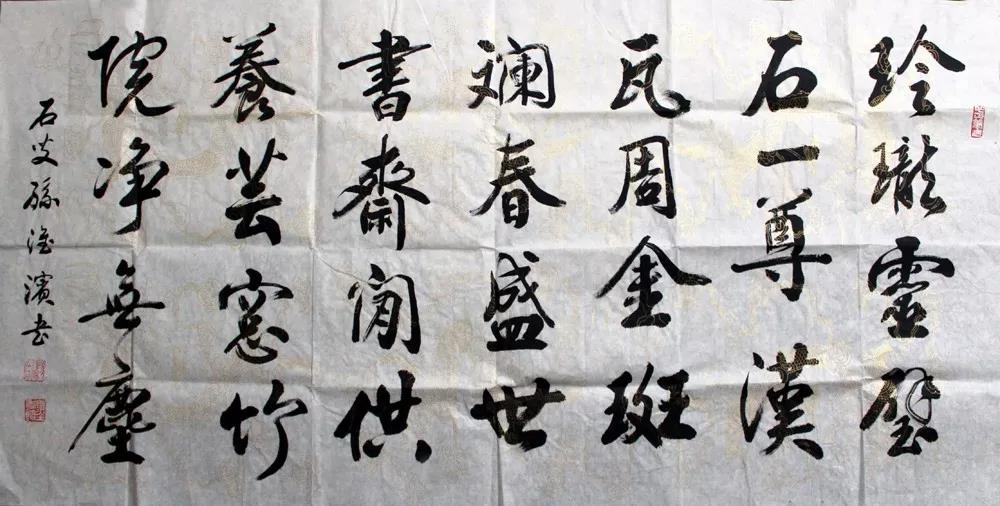 玲瓏靈璧
石一尊漢
瓦周金斑
斓春盛世
書齋閑供
養芸窓竹
院净無塵
石叟孫淮濱书